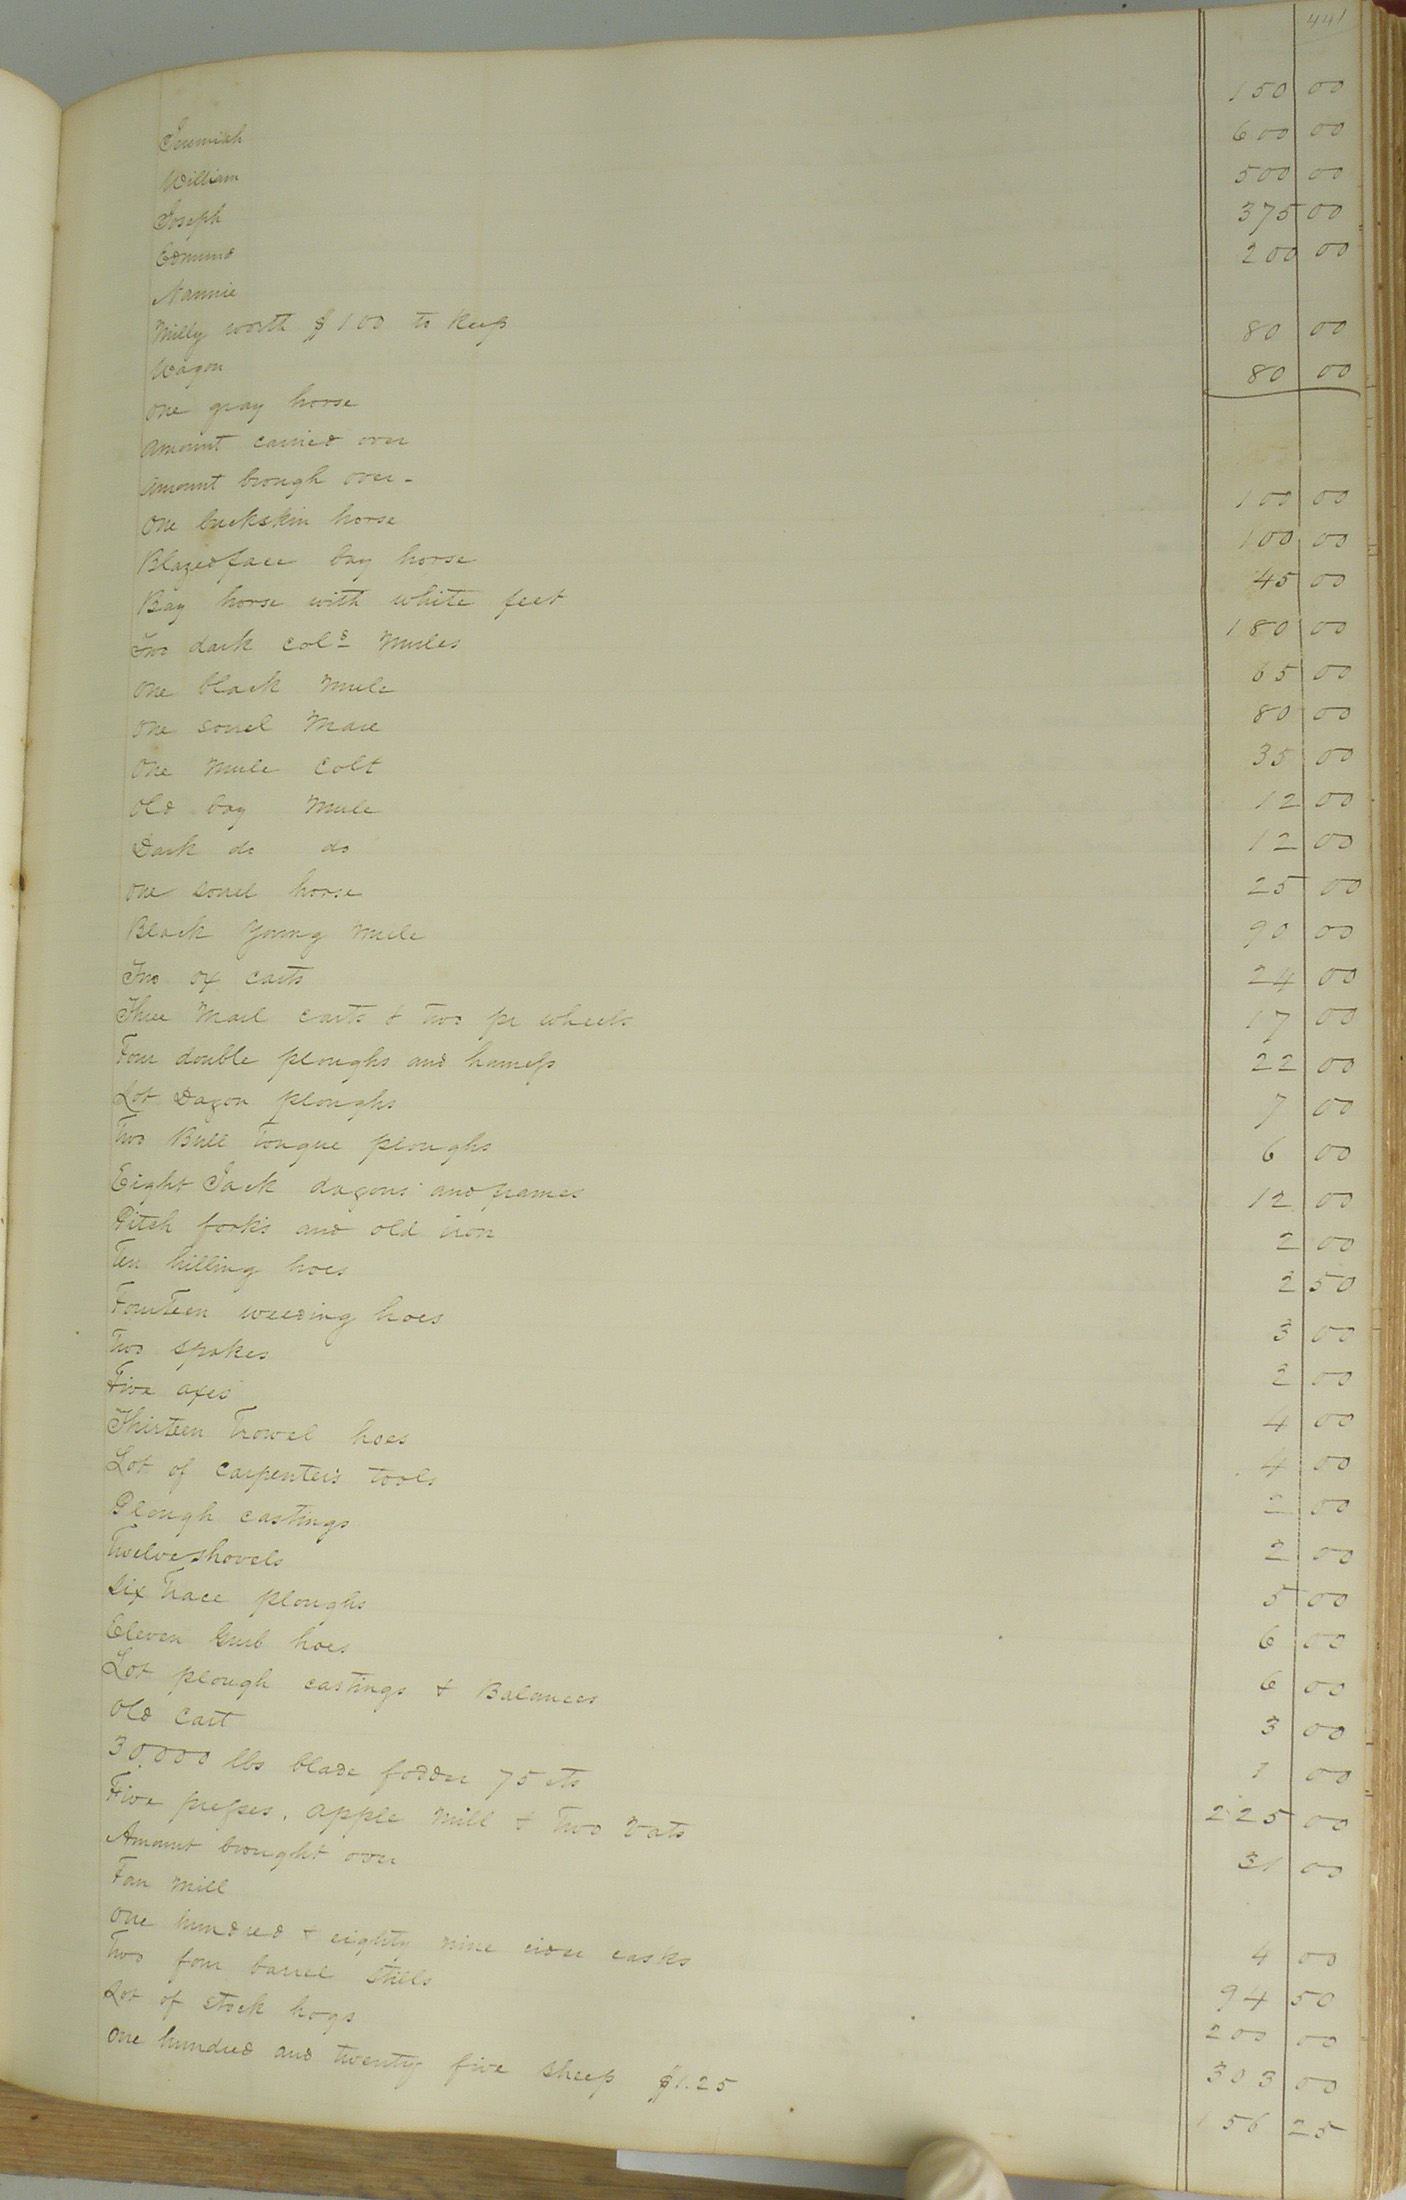 441
Jeremiah 150 00
William 600 00
Joseph 500 00
Edmund 375 00
Nannie 200 00
Milly worth $100 to keep
Wagon 80 00
One gray horse 80 00
Amount carried over
Amount brough over-
One buckskin horse 100 00
Blazedface bay horse 100 00
Bay horse with white feet 45 00
Two dark cols Mules 180 00
One black Mule 65 00
One sorrel Mare 80 00
One Mule Colt 35 00
Old bay Mule 12 00
Dark do do 12 00
One sorrel horse 25 00
Black Young Mule 90 00
Two ox carts 24 00
Three Mail carts & two pr wheels 17 00
Four double ploughs and harness 22 00
Lot Dagon ploughs 7 00
Two Bull Tongue ploughs 6 00
Eight Jack dagons and frames 12 00
Pitch forks and old iron 2 00
Ten hilling hoes 2 50
Fourteen weeding hoes 3 00
Two spokes 2 00
Five axes 4 00
Thirteen Trowel hoes 4 00
Lot of carpenters tools 2 00
Plough castings 2 00
Twelve shovels 5 00
Six Trace ploughs 6 00
Eleven Grub hoes 6 00
Lot plough castings & Balances 3 00
Old Cart 1 00
30.000 lbs blade fodder 75 cts 225 00
Five presses. apple Mill & Two Vats 31 00
Amount brought over
Fan Mill 4 00
One hundred & eighty nine cider casks 94 50
Two four barrel Stills 200 00
Lot of stock hogs 303 00
One hundred and twenty five sheep $1.25 156 25